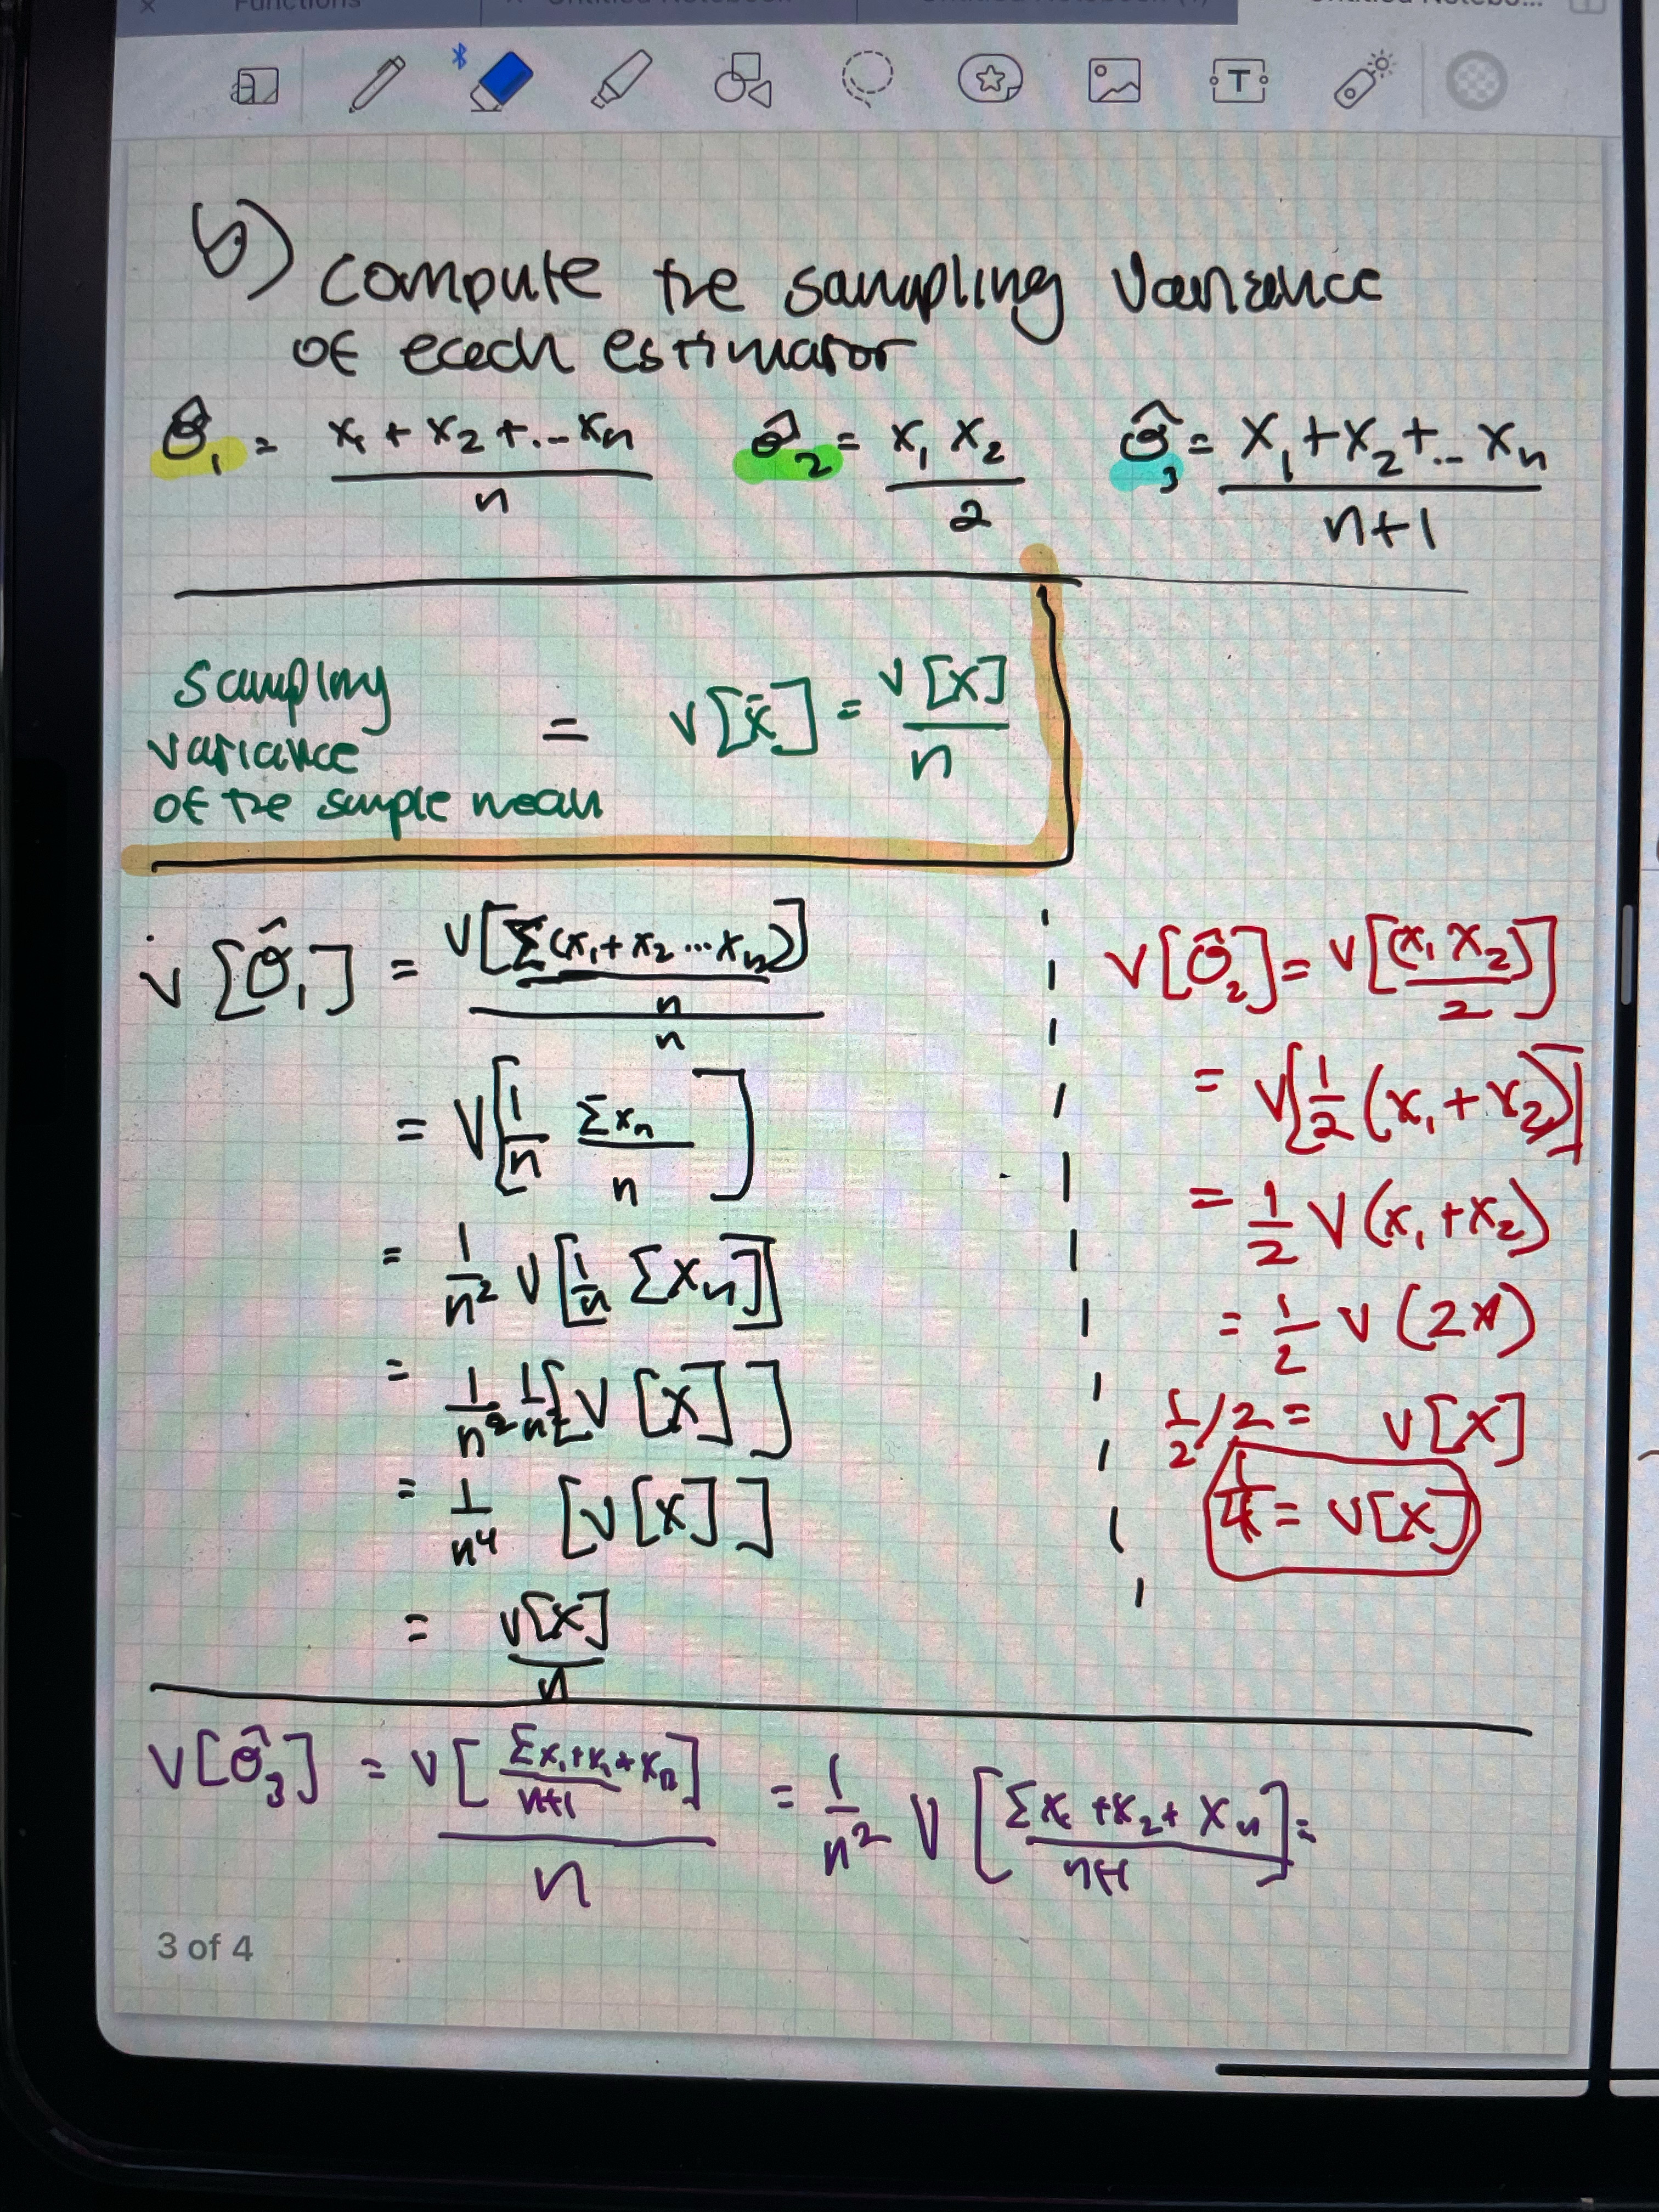 Functions
b) compute the sampling variance
of each estimator
θ̂₁ = x₁ + x₂ + ... xn / n
θ̂₂ = x₁ x₂ / 2
θ̂₃ = x₁ + x₂ + .. xn / n+1
sampling
variance
of the sample mean
= V[x̄] = V[x] / n
V[θ̂₁] = V[Σ(x₁ + x₂ ... xn) / n] / n
= V[1/n Σxn / n]
= 1/n² V[1/n Σxn]
= 1/n² 1/n² [V[x]]
= 1/n⁴ [V[x]]
= V[x] / n
V[θ̂₂] = V[(x₁ x₂) / 2]
= V[1/2 (x₁ + x₂)]
= 1/2 V(x₁ + x₂)
= 1/2 V(2x)
1/2 / 2 = V[x]
1/4 = V[x]
V[θ̂₃] = V[Σx₁ + x₁ + xn / n+1] / n = 1/n² V[Σx₁ + x₂ + xn / n+1] =
3 of 4